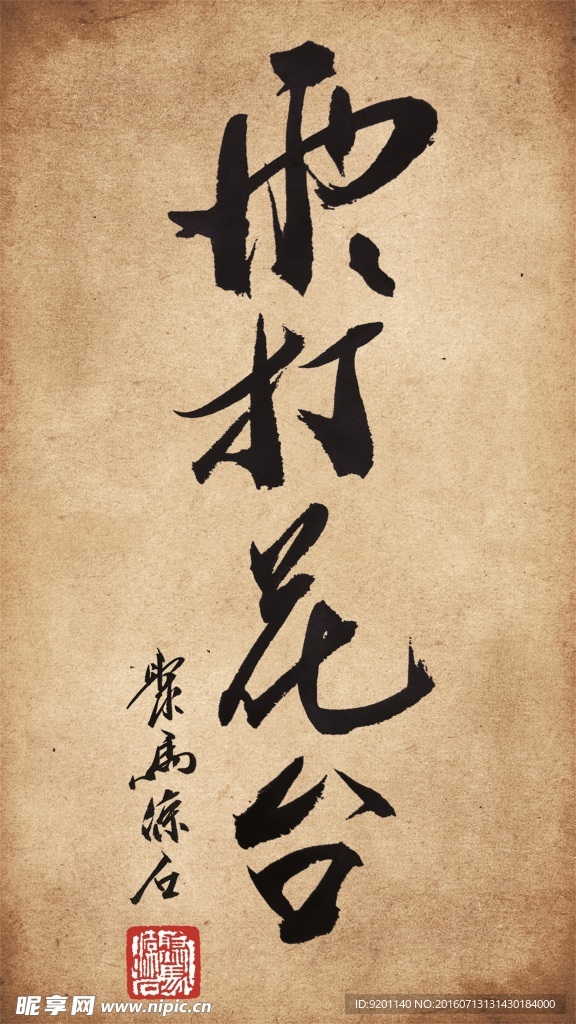 雨打花台
聚馬凉石
昵享网 www.nipic.cn
ID:9201140 NO:20160713131430184000